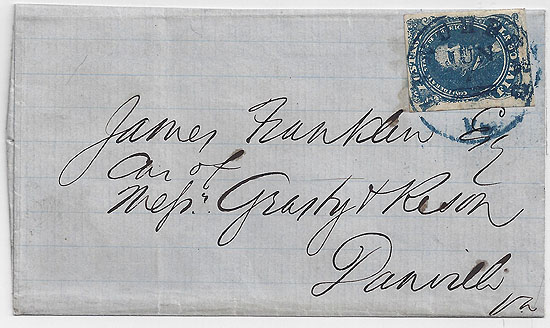 James Franklin Esq
Car of
Messrs. Grasty & Rison
Danville
Va